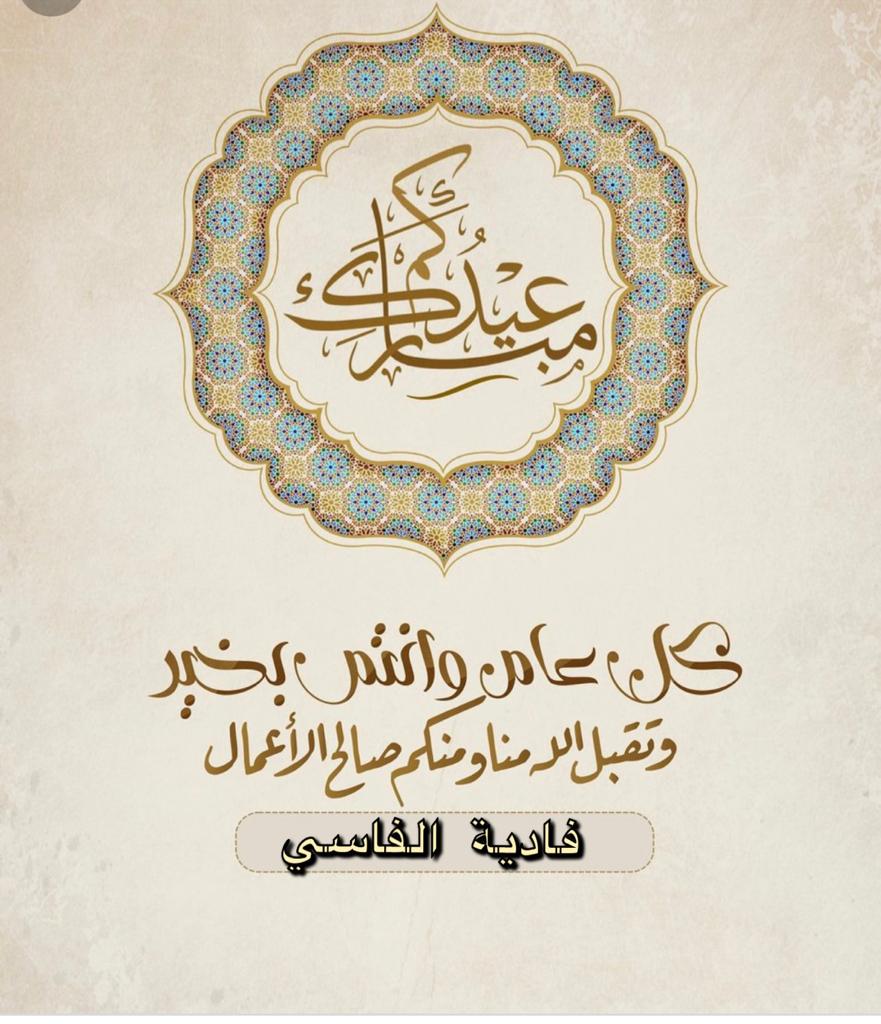 عيدكم مبارك
كل عام وانتم بخير
وتقبل الله منا ومنكم صالح الأعمال
فادية الفاسي